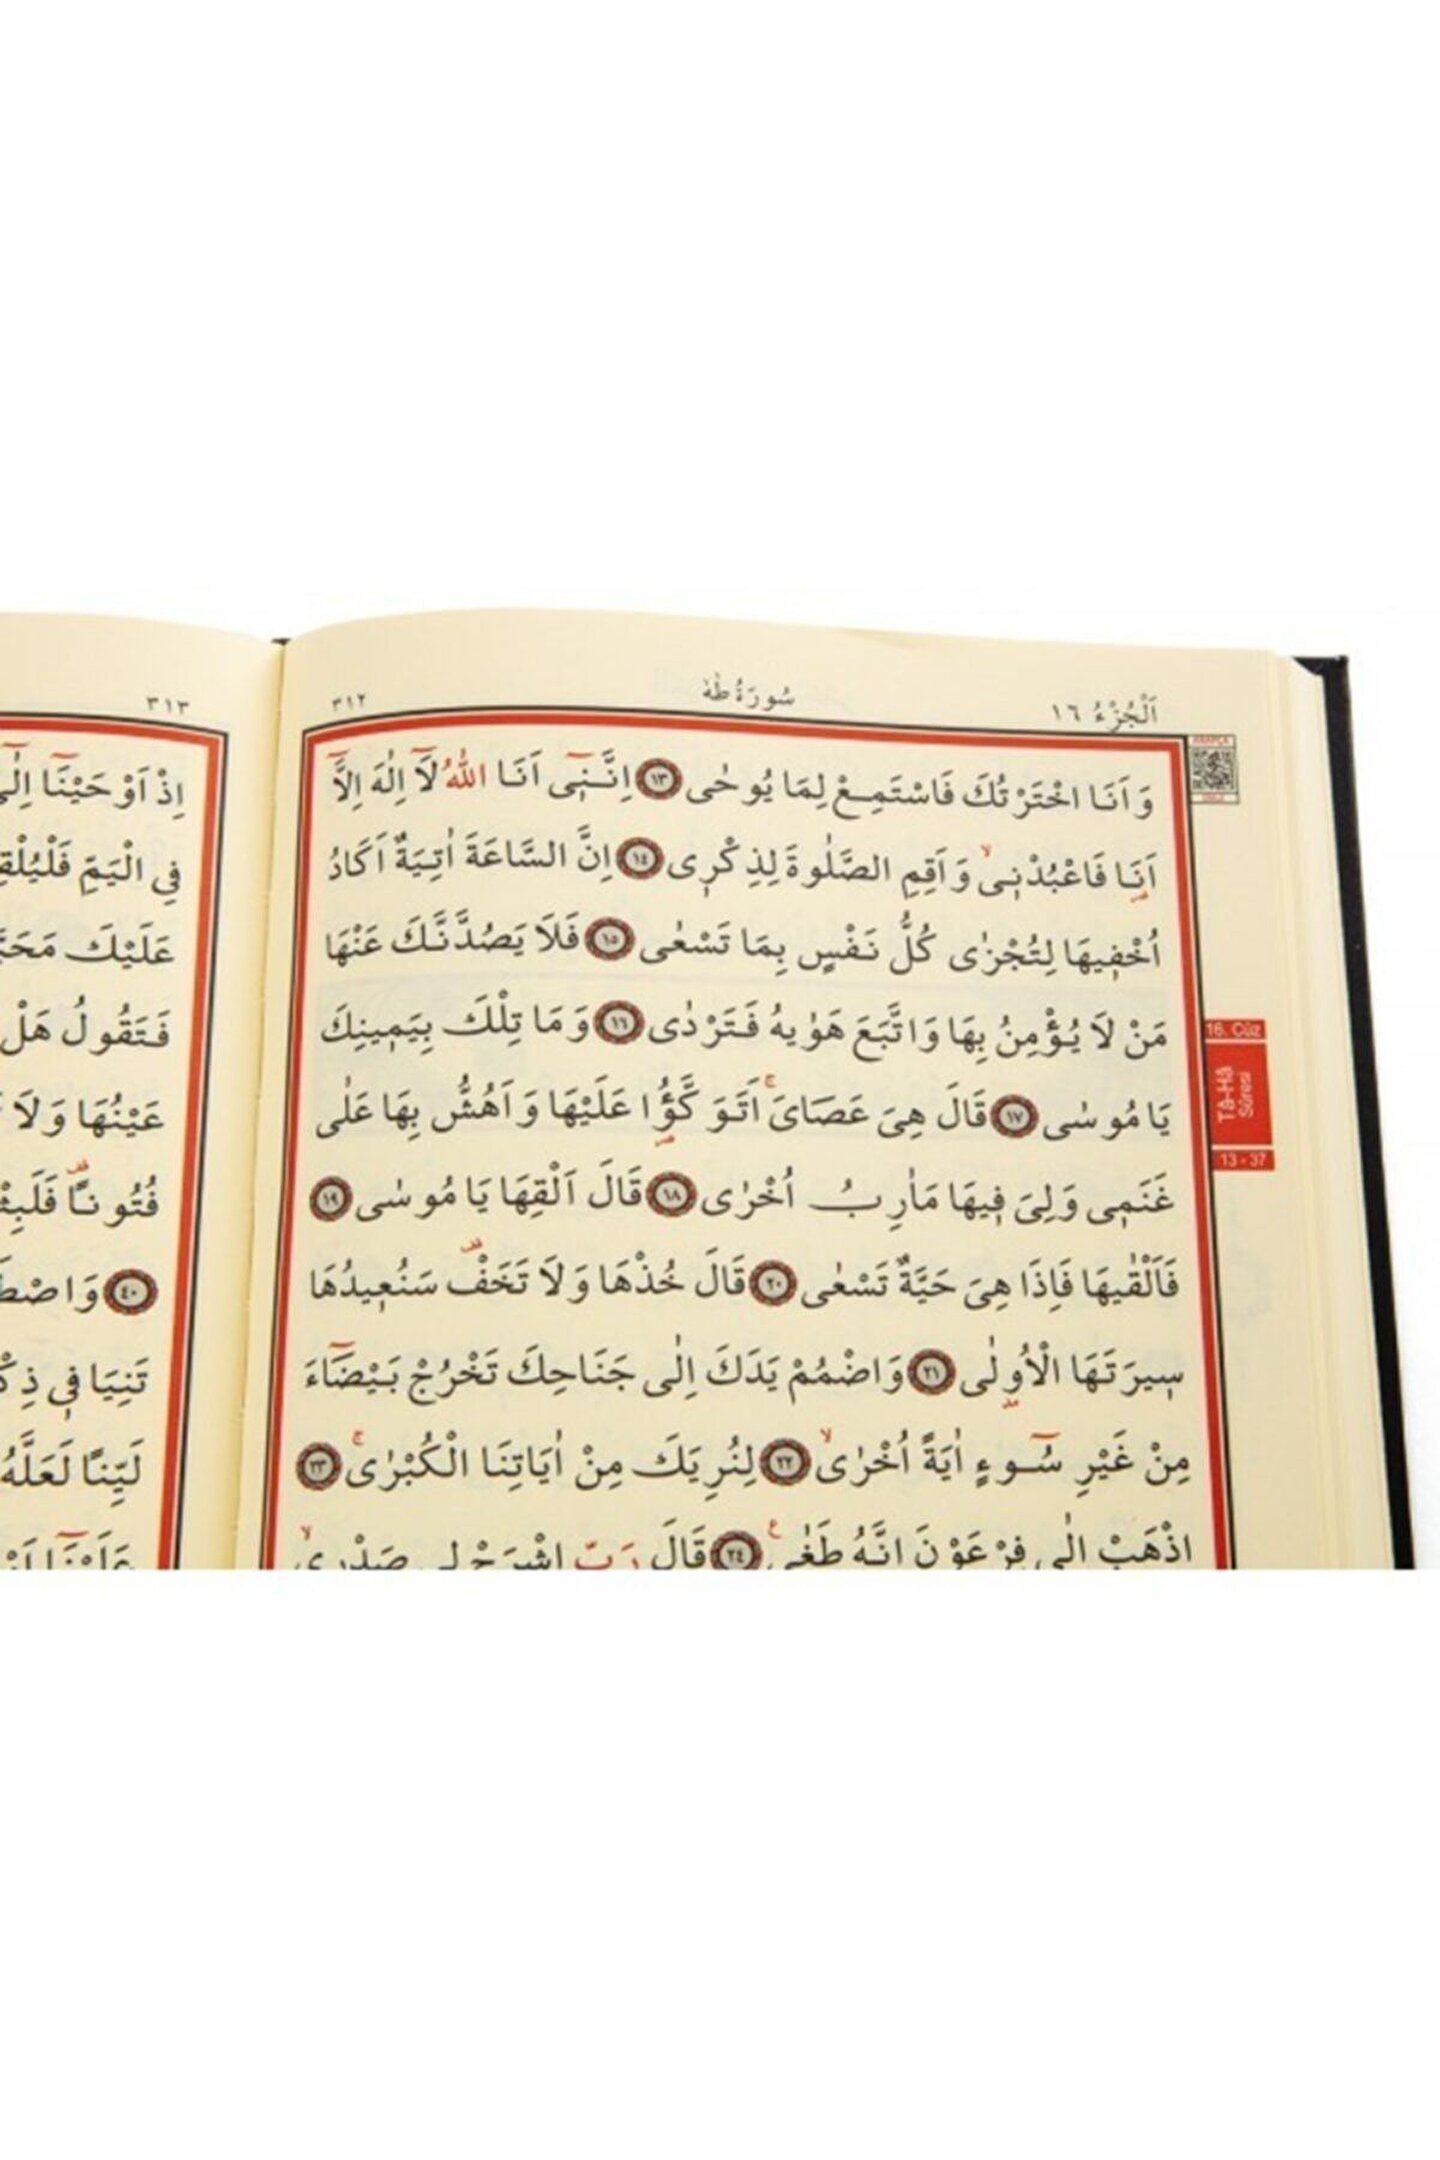 اَلْجُزْءُ ١٦
سُورَةُ طٰهٰ
٣١٢
وَاَنَا اخْتَرْتُكَ فَاسْتَمِعْ لِمَا يُوحٰى ﴿١٣﴾ اِنَّنٖٓى اَنَا اللّٰهُ لَٓا اِلٰهَ اِلَّٓا
اَنَا فَاعْبُدْنٖىۙ وَاَقِمِ الصَّلٰوةَ لِذِكْرٖى ﴿١٤﴾ اِنَّ السَّاعَةَ اٰتِيَةٌ اَكَادُ
اُخْفٖيهَا لِتُجْزٰى كُلُّ نَفْسٍ بِمَا تَسْعٰى ﴿١٥﴾ فَلَا يَصُدَّنَّكَ عَنْهَا
مَنْ لَا يُؤْمِنُ بِهَا وَاتَّبَعَ هَوٰيهُ فَتَرْدٰى ﴿١٦﴾ وَمَا تِلْكَ بِيَمٖينِكَ
يَا مُوسٰى ﴿١٧﴾ قَالَ هِىَ عَصَاىَۚ اَتَوَكَّؤُ۬ا عَلَيْهَا وَاَهُشُّ بِهَا عَلٰى
غَنَمٖى وَلِىَ فٖيهَا مَاٰرِبُ اُخْرٰى ﴿١٨﴾ قَالَ اَلْقِهَا يَا مُوسٰى ﴿١٩﴾
فَاَلْقٰيهَا فَاِذَا هِىَ حَيَّةٌ تَسْعٰى ﴿٢٠﴾ قَالَ خُذْهَا وَلَا تَخَفْ۠ سَنُعٖيدُهَا
سٖيرَتَهَا الْاُو۫لٰى ﴿٢١﴾ وَاضْمُمْ يَدَكَ اِلٰى جَنَاحِكَ تَخْرُجْ بَيْضَٓاءَ
مِنْ غَيْرِ سُٓوءٍ اٰيَةً اُخْرٰىۙ ﴿٢٢﴾ لِنُرِيَكَ مِنْ اٰيَاتِنَا الْكُبْرٰىۚ ﴿٢٣﴾
اِذْهَبْ اِلٰى فِرْعَوْنَ اِنَّهُ طَغٰى ﴿٢٤﴾ قَالَ رَبِّ اشْرَحْ لٖى صَدْرٖىۙ
16. Cüz
Tâ-Hâ
Sûresi
13 - 37
٣١٣
اِذْ اَوْحَيْنَٓا اِلٰٓى
فِى الْيَمِّ فَلْيُلْقِ
عَلَيْكَ
فَتَقُولُ هَلْ
عَيْنُهَا وَلَا
فُتُونًا۠ فَلَبِثْ
﴿٤٠﴾ وَاصْطَ
تَنِيَا فٖى ذِكْ
لَيِّنًا لَعَلَّهُ
عَلَيْنَٓا